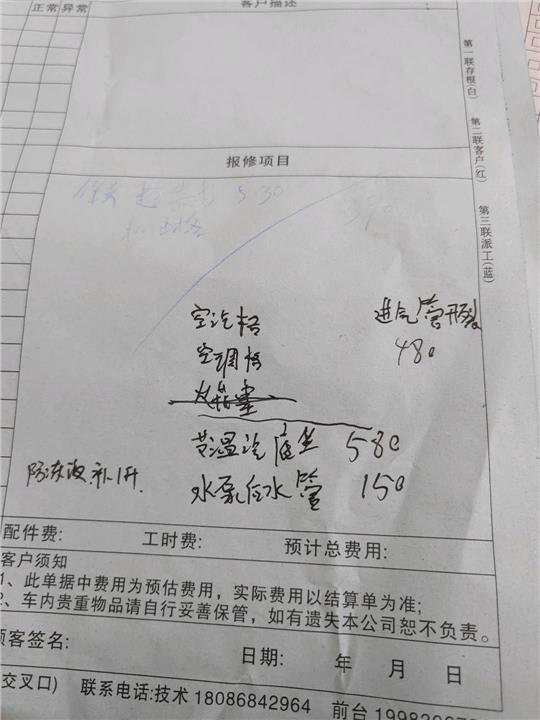 正常 异常 客户描述
第一联存根(白) 第二联客户(红) 第三联派工(蓝)
报修项目
530
空汽格 进气管开裂
空调格 480
节温汽底坐 580
防冻液补1升. 水泵后水管 150
配件费: 工时费: 预计总费用:
客户须知
1、此单据中费用为预估费用，实际费用以结算单为准;
2、车内贵重物品请自行妥善保管，如有遗失本公司恕不负责。
顾客签名: 日期: 年 月 日
交叉口) 联系电话:技术 18086842964 前台